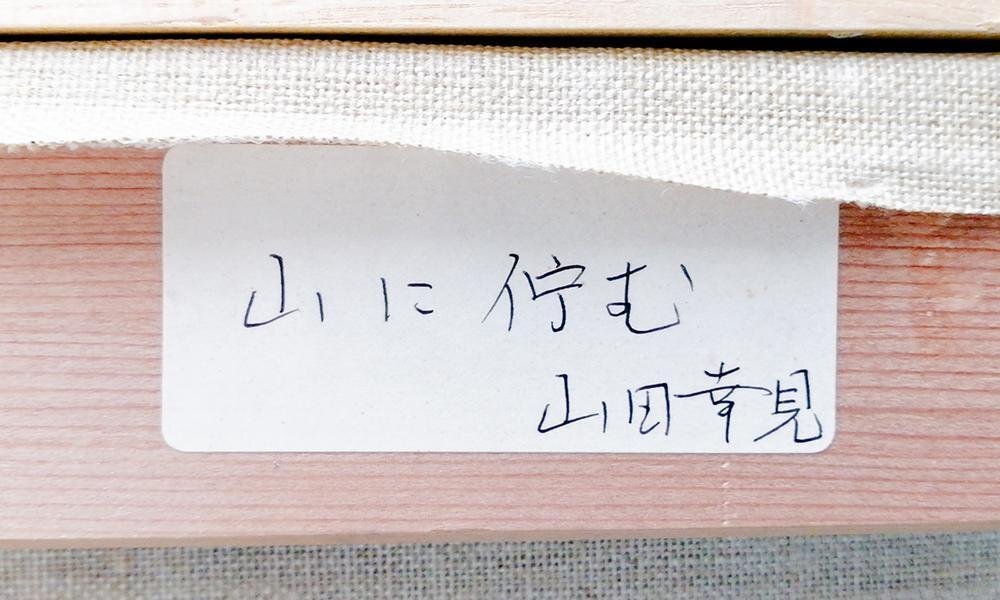 山に佇む
山田幸見